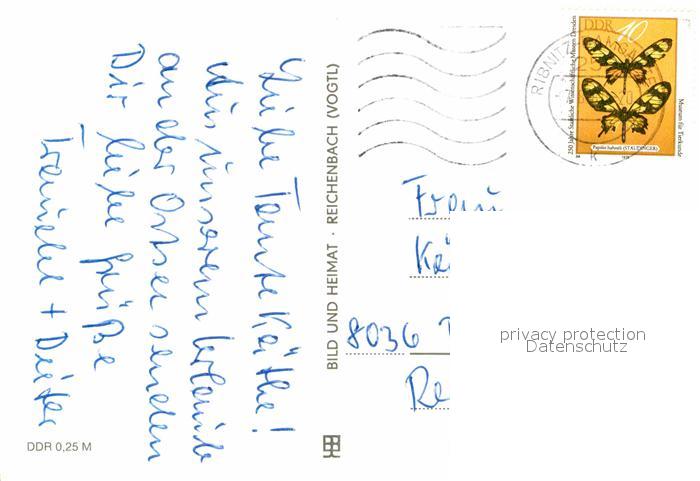 Liebe Tante Käthe!
Aus unserem Urlaub
an der Ostsee senden
Dir liebe Grüße
+ Dieter
DDR 0,25 M
BILD UND HEIMAT · REICHENBACH (VOGTL)
DDR 10
250 Jahre Staatliche Wissenschaftliche Museen Dresden
Museum für Tierkunde
Papilio hahneli (STAUDINGER)
RIBNITZ
Frau
8036
privacy protection
Datenschutz